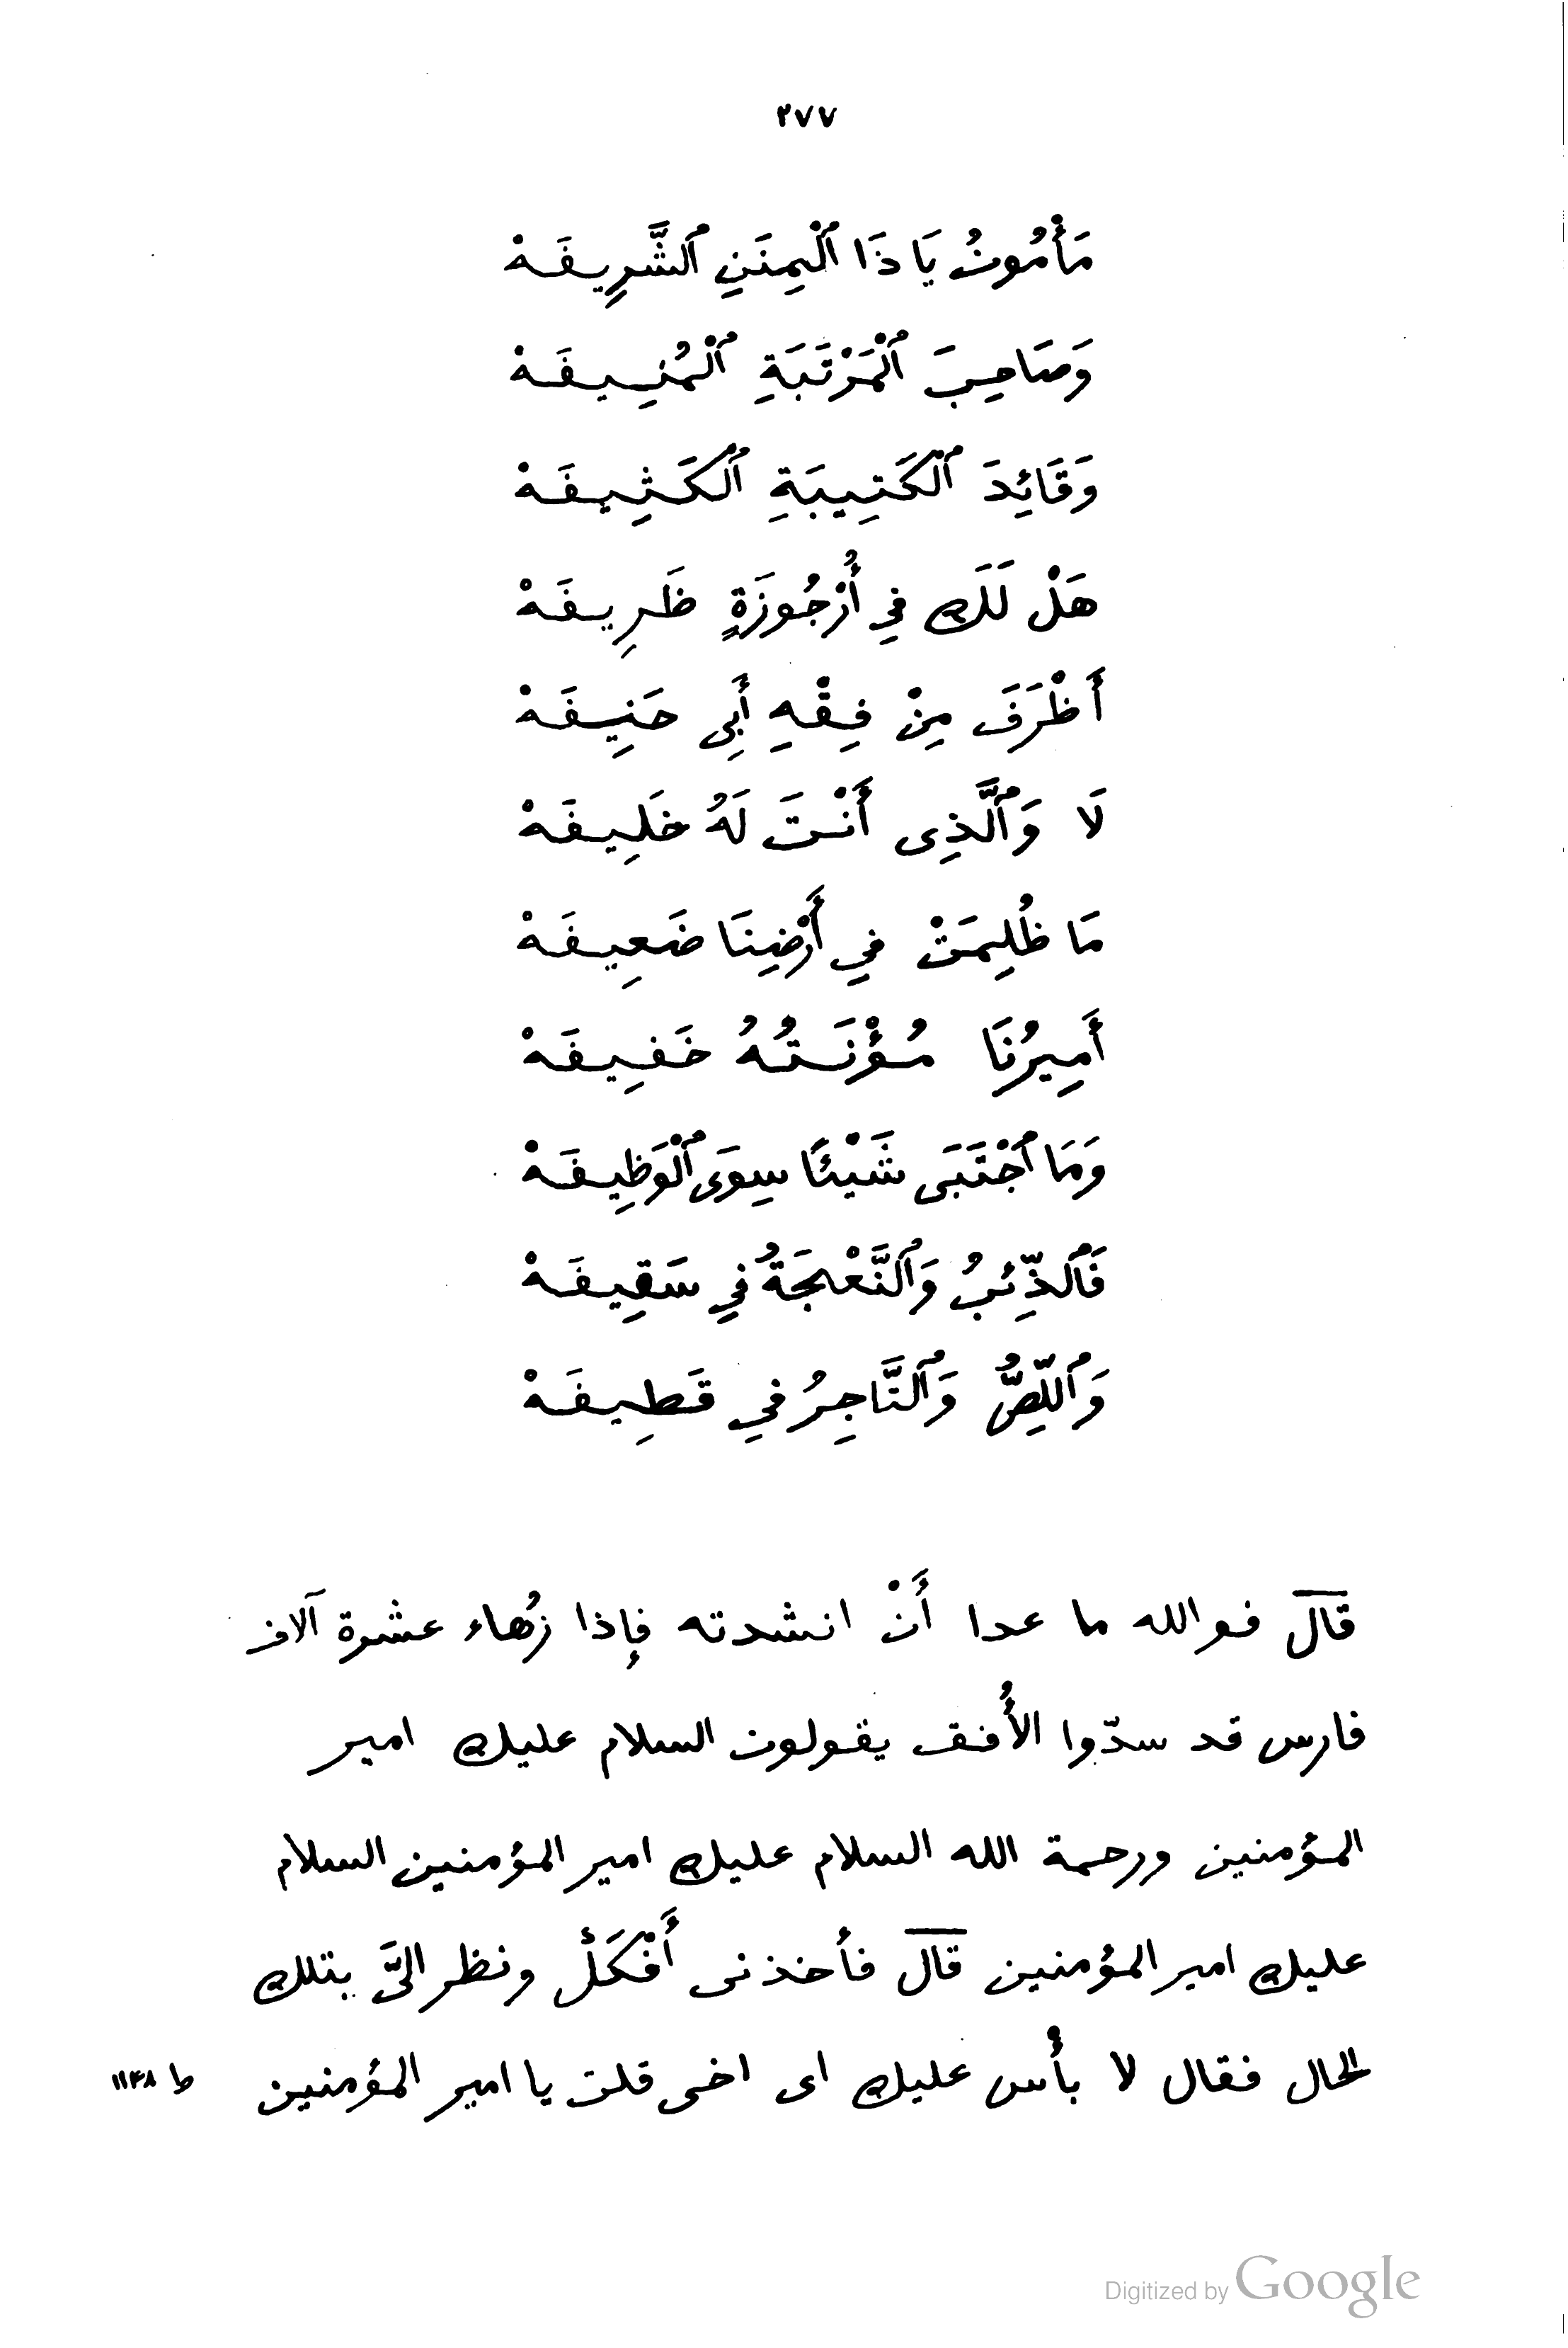 ٢٧٧
مَأْمُونُ يَا ذَا ٱلْمِنَنِ ٱلشَّرِيفَهْ
وَصَاحِبَ ٱلْمَرْتَبَةِ ٱلْمُنِيفَهْ
وَقَائِدَ ٱلْكَتِيبَةِ ٱلْكَثِيفَهْ
هَلْ لَكَ فِي أُرْجُوزَةٍ ظَرِيفَهْ
أَظْرَفَ مِنْ فِقْهِ أَبِى حَنِيفَهْ
لَا وَٱلَّذِى أَنْتَ لَهُ خَلِيفَهْ
مَا ظُلِمَتْ فِي أَرْضِنَا ضَعِيفَهْ
أَمِيرُنَا مُؤْنَتُهُ خَفِيفَهْ
وَمَا ٱجْتَبَى شَيْئًا سِوَى ٱلْوَظِيفَهْ
فَٱلذِّئبُ وَٱلنَّعْجَةُ فِي سَقِيفَهْ
وَٱللِّصُّ وَٱلتَّاجِرُ فِي قَطِيفَهْ
قال فوالله ما عدا أَنْ انشدته فإذا زُهاء عشرة آلاف
فارس قد سدّوا الأُفق يقولون السلام عليك امير
المؤمنين ورحمة الله السلام عليك امير المؤمنين السلام
عليك امير المؤمنين قال فأخذنى أَفْكَلْ ونظر الىَّ بتلك
الحال فقال لا بأس عليك اى اخى قلت يا امير المؤمنين
ط ١١٤٨
Digitized by Google